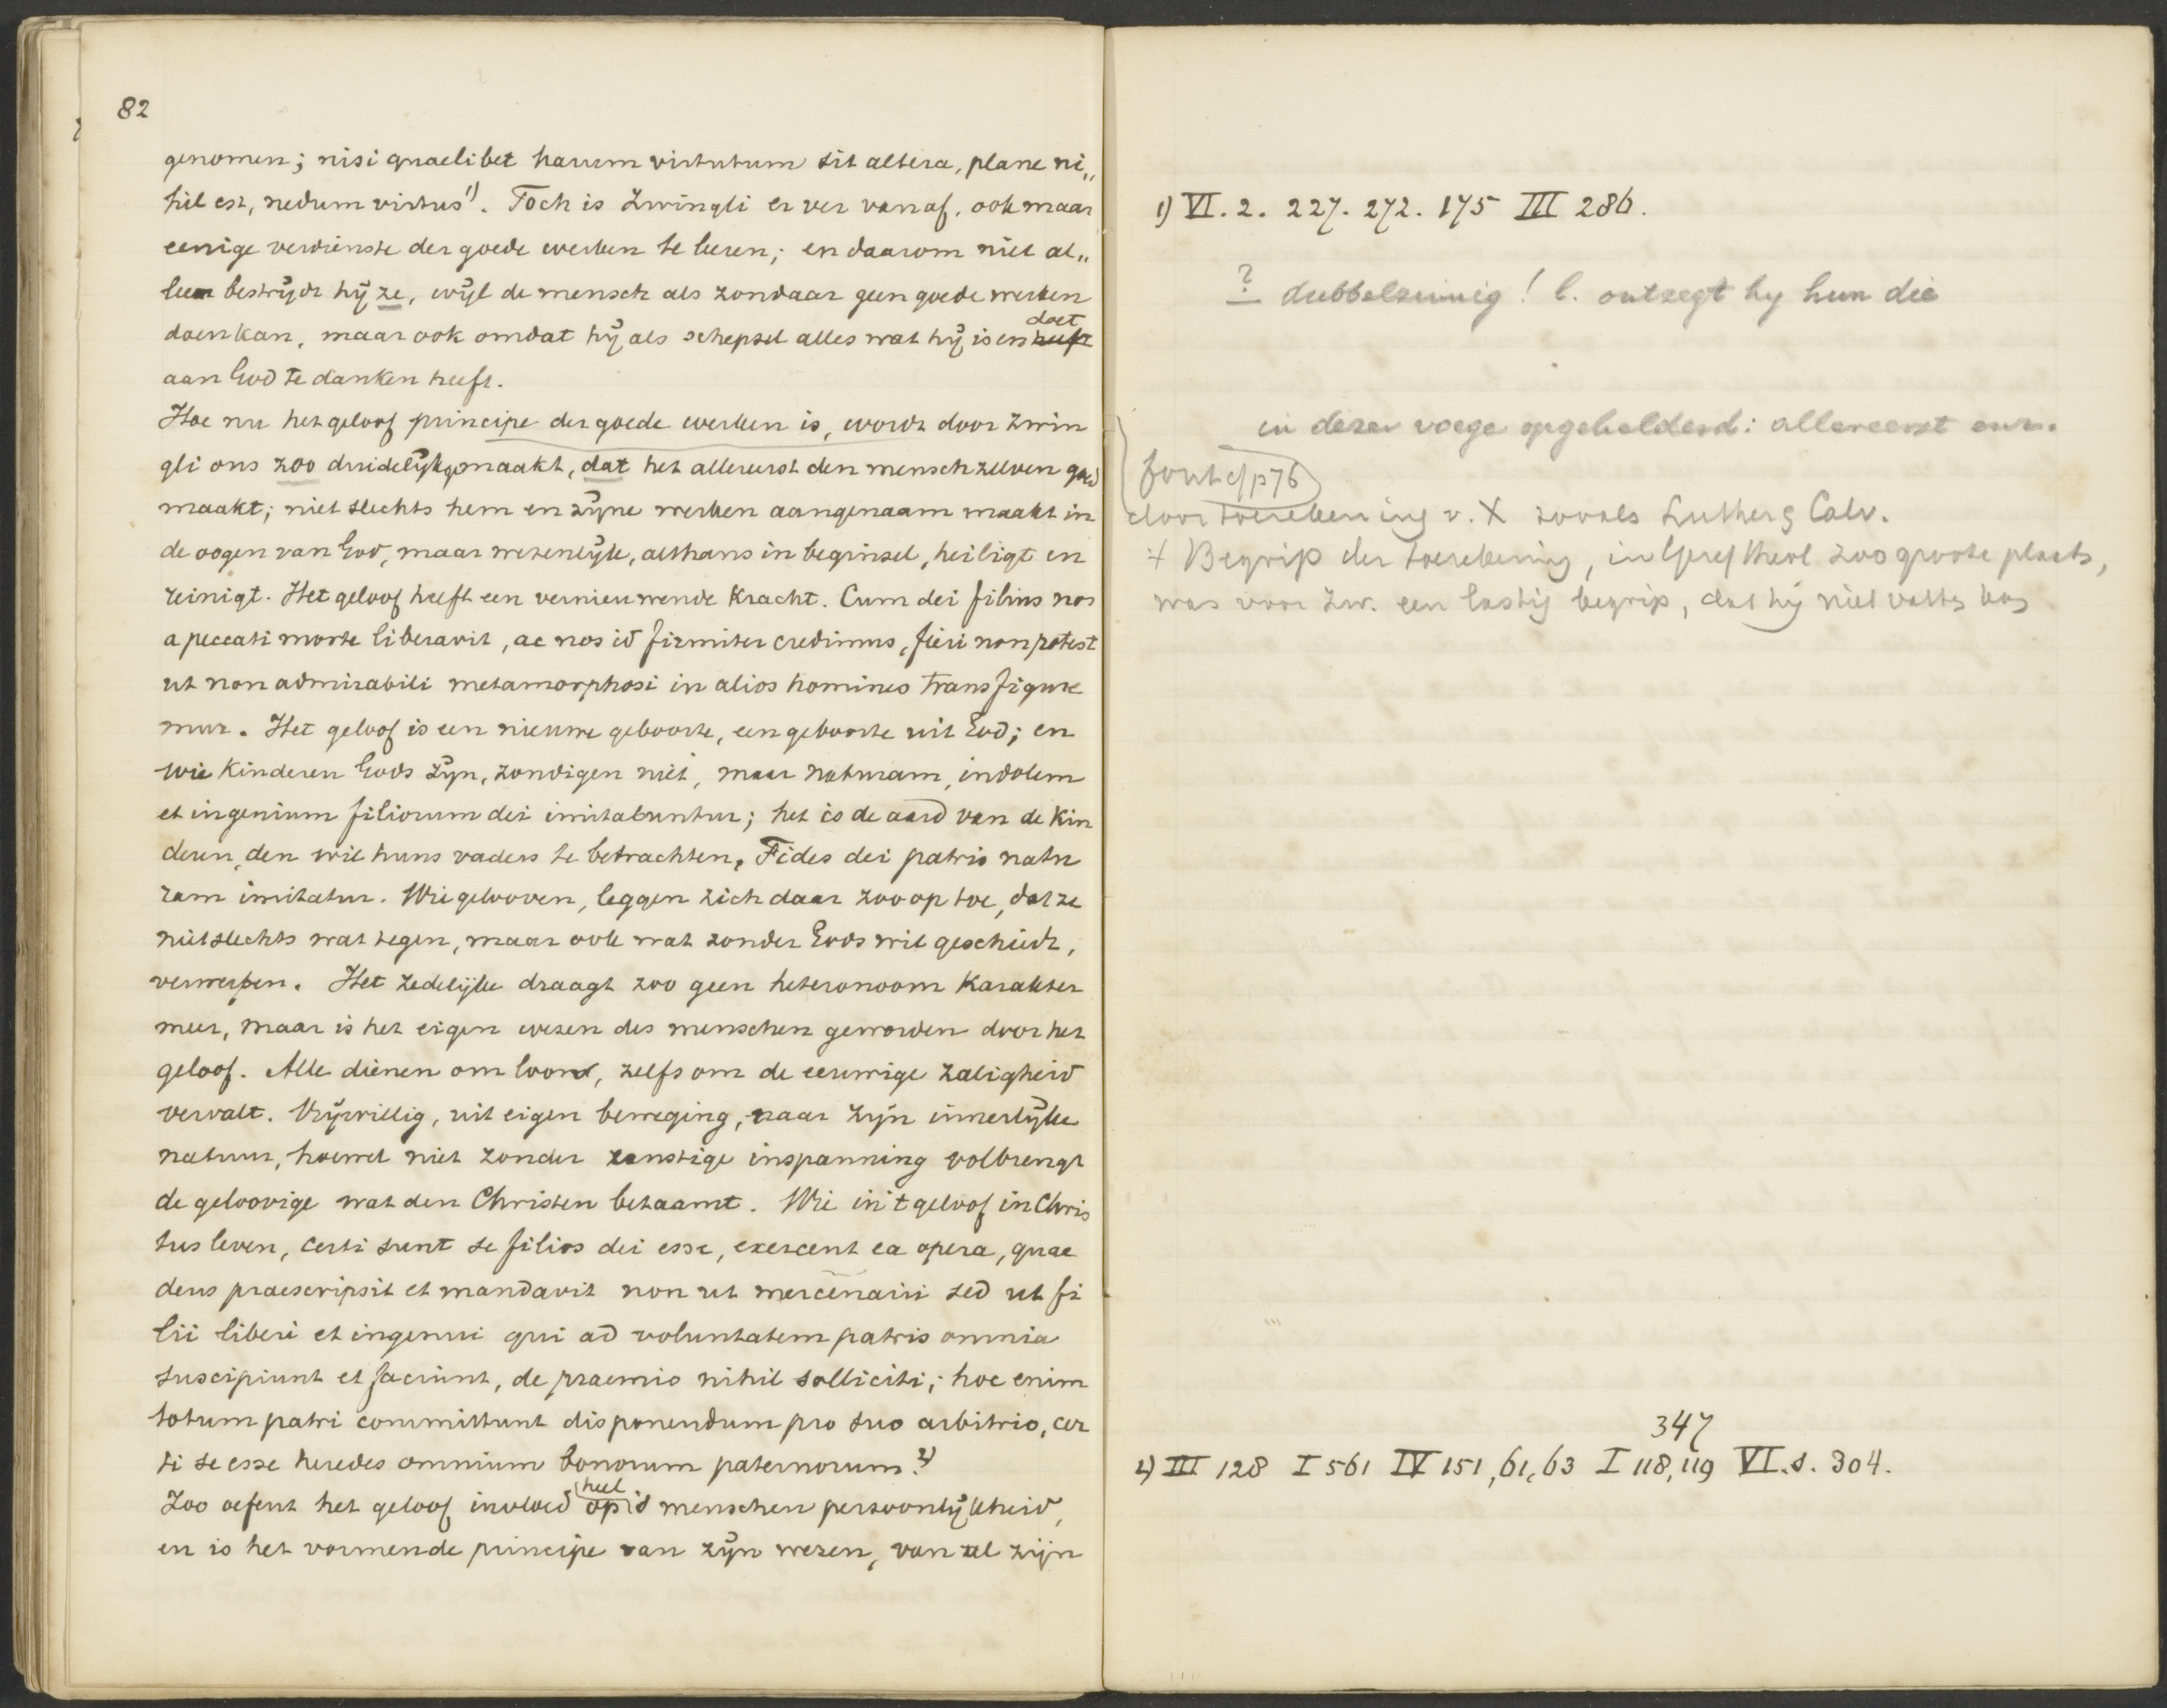 82
genomen; nisi quaelibet harum virtutum sit altera, plane ni„
hil est, nedum virtus 1). Toch is Zwingli er ver vanaf, ook maar
eenige verdienste der goede werken te leeren; en daarom niet al„
leen bestrijdt hij ze, wijl de mensch als zondaar geen goede werken
doen kan, maar ook omdat hij als schepsel alles wat hij is en heeft doet
aan God te danken heeft.
Hoe nu het geloof principe der goede werken is, wordt door Zwin
gli ons zoo duidelijk gemaakt, dat het allereerst den mensch zelven goed
maakt; niet slechts hem en zijne werken aangenaam maakt in
de oogen van God, maar wezenlijk, althans in beginsel, heiligt en
reinigt. Het geloof heeft een vernieuwende kracht. Cum dei filius nos
a peccati morte liberavit, ac nos id firmiter credimus, fieri non potest
ut non admirabili metamorphosi in alios homines transfigure
mur. Het geloof is een nieuwe geboorte, een geboorte uit God; en
wie kinderen Gods zijn, zondigen niet, maar naturam, indolem
et ingenium filiorum dei imitabuntur; het is de aard van de kin
deren, den wil huns vaders te betrachten, Fides dei patris natu
ram imitatur. Wie gelooven, leggen zich daar zoo op toe, dat ze
niet slechts wat tegen, maar ook wat zonder Gods wil geschiedt,
verwerpen. Het zedelijke draagt zoo geen heteronoom karakter
meer, maar is het eigen wezen des menschen geworden door het
geloof. Alle dienen om loon, zelfs om de eeuwige zaligheid
vervalt. Vrijwillig, uit eigen beweging, naar zijn innerlijke
natuur, hoewel niet zonder ernstige inspanning volbrengt
de geloovige wat den Christen betaamt. Wie in 't geloof in Chris
tus leven, certi sunt se filios dei esse, exercent ea opera, quae
deus praescripsit et mandavit non ut mercenarii sed ut fi
lii liberi et ingenui qui ad voluntatem patris omnia
suscipiunt et faciunt, de praemio nihil solliciti; hoc enim
totum patri committunt disponendum pro suo arbitrio, cer
ti se esse heredes omnium bonorum paternorum. 2)
Zoo oefent het geloof invloed op heel 's menschen persoonlijkheid,
en is het vormende principe van zijn wezen, van al zijn
1) VI. 2. 227. 272. 175 III 286.
? dubbelzinnig! l. ontzegt hy hun die
in dezer voege opgehelderd: allereerst enz.
fout cf p 76
door toerekening v. X zooals Luther & Calv.
+ Begrip der toerekening, in Geref theol zoo groote plaats,
was voor Zw. een lastig begrip, dat hij niet vatten kon
347
2) III 128 I 561 IV 151, 61, 63 I 118, 119 VI. 1. 304.